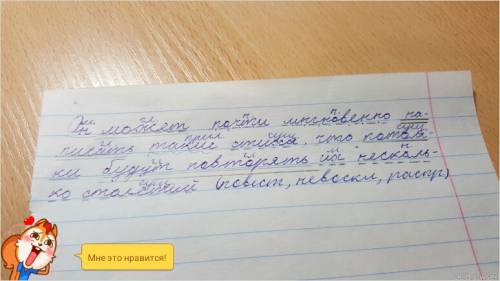 Он может почти мгновенно на-
писать такие стихи, что потом-
ки будут повторять их несколь-
ко столетий (повест, невоскл, распр)
Мне это нравится!